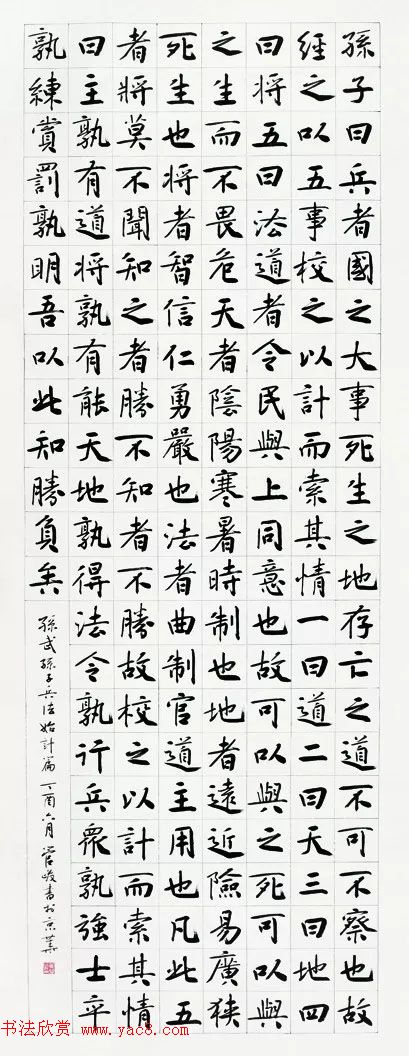 孫子曰兵者國之大事死生之地存亡之道不可不察也故
經之以五事校之以計而索其情一曰道二曰天三曰地四
曰將五曰法道者令民與上同意也故可以與之死可以與
之生而不畏危天者陰陽寒暑時制也地者遠近險易廣狹
死生也將者智信仁勇嚴也法者曲制官道主用也凡此五
者將莫不聞知之者勝不知者不勝故校之以計而索其情
曰主孰有道將孰有能天地孰得法令孰行兵衆孰強士卒
孰練賞罰孰明吾以此知勝負矣
孫武孫子兵法始計篇丁酉六月管峻書於京華
书法欣赏 www.yac8.com